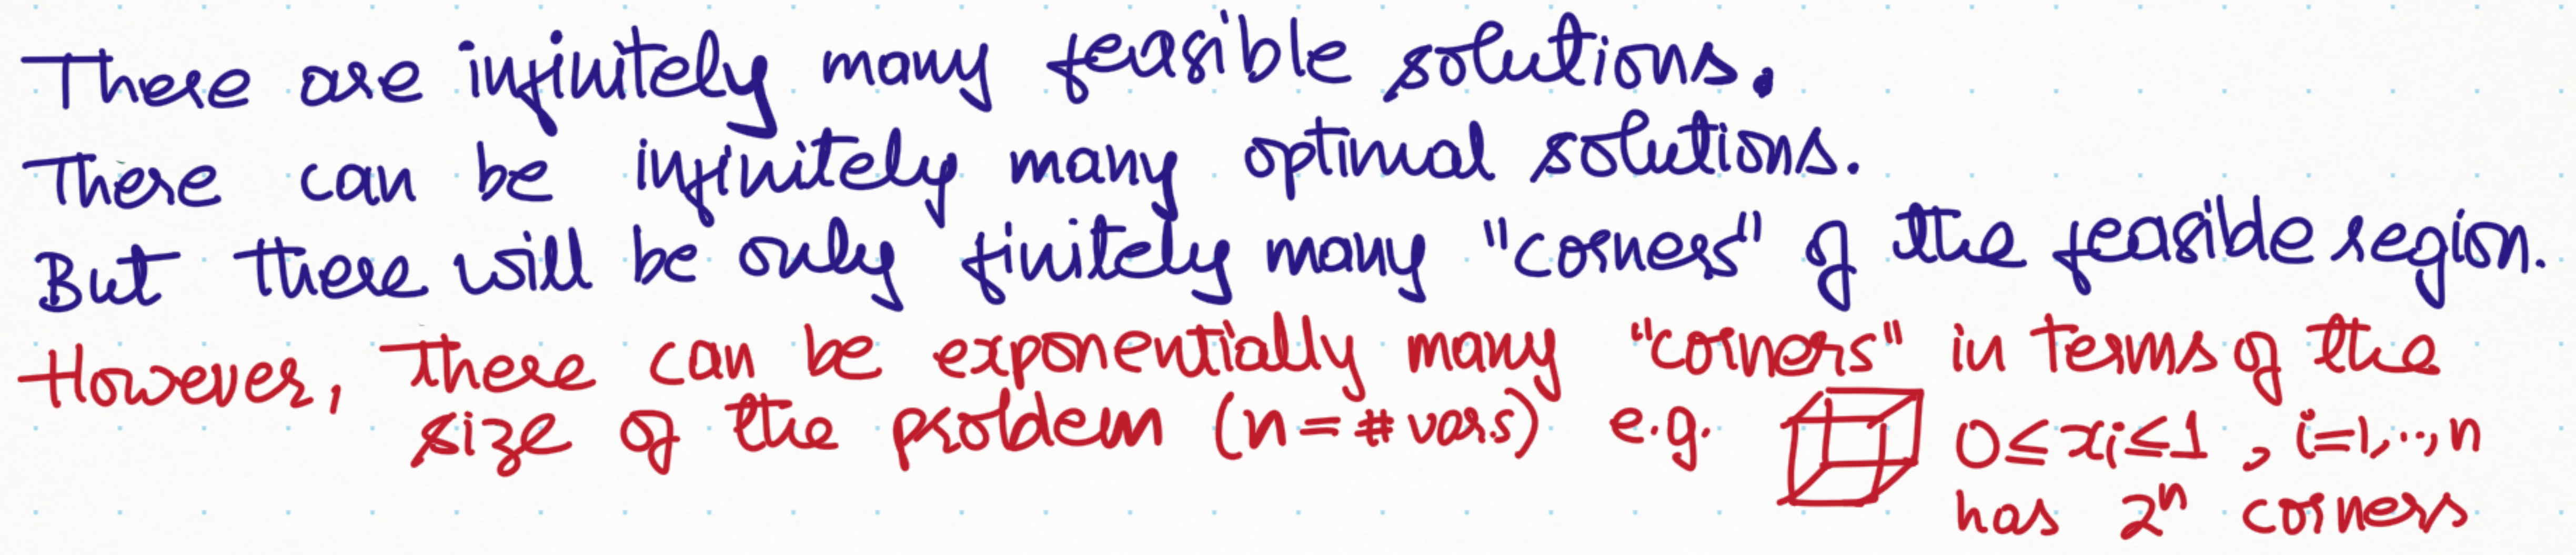 There are infinitely many feasible solutions.
There can be infinitely many optimal solutions.
But there will be only finitely many "corners" of the feasible region.
However, there can be exponentially many "corners" in terms of the
size of the problem (n = # vars) e.g. 0 ≤ xi ≤ 1 , i=1,..,n
has 2^n corners